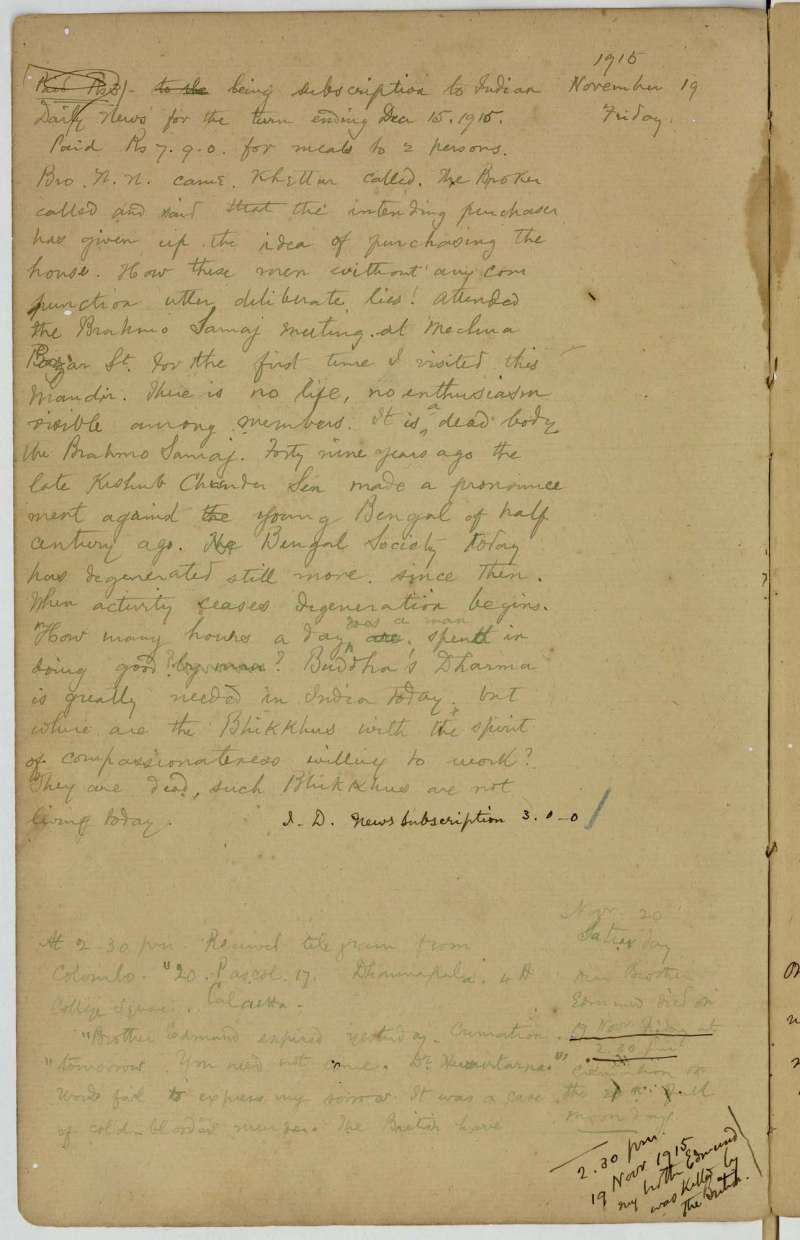 1915
November 19
Friday.
being subscription to Indian
Daily News for the turn ending Dec 15. 1915.
Paid Rs 7. 9. 0. for meals to 2 persons.
Bro. N. N. came. Khettur called. The Broker
called and said that the intending purchaser
has given up the idea of purchasing the
house. How these men without any com
punction utter deliberate lies! Attended
the Brahmo Samaj meeting at Mechua
Bazar St. For the first time I visited this
Mandir. There is no life, no enthusiasm
visible among members. It is a dead body
the Brahmo Samaj. Forty nine years ago the
late Keshub Chunder Sen made a pronounce
ment against the young Bengal of half
century ago. The Bengal Society today
has degenerated still more since then.
When activity ceases degeneration begins.
"How many hours a day has a man are spent in
doing good by man? Buddha's Dharma
is greatly needed in India today. but
where are the Bhikkhus with the spirit
of compassionateness willing to work?
They are dead, such Bhikkhus are not
living today.
I. D. News Subscription 3. 0 - 0
Nov. 20
Saturday
At 2-30 pm. Received telegram from
Colombo. "20. 17. Dhammapala. 4 A
College Square. Calcutta.
"Brother Edmund expired yesterday. Cremation
"tomorrow. You need not come. Dr Hewavitarne."
Words fail to express my sorrow. It was a case
of cold-blooded murder. The British have
dear Brother
Edmund died on
19 Nov. Friday at
2.30 pm
Cremation on
the 21st. Full
moon day
2.30 pm.
19 Novr 1915
my brother Edmund
was killed by
the British.